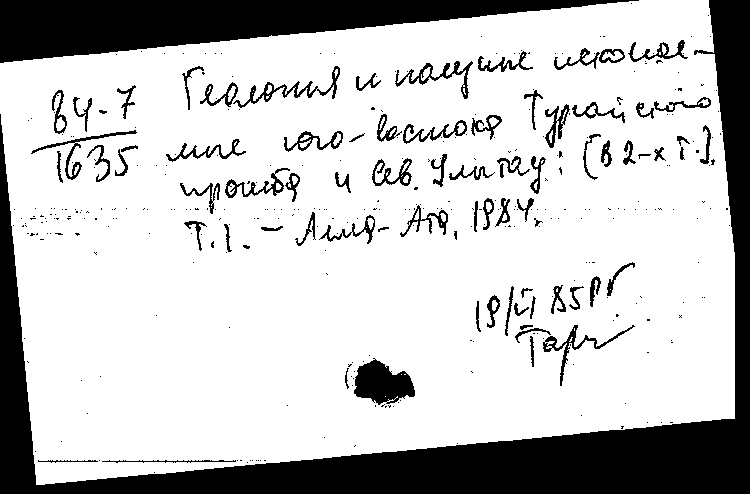 84-7
1635
Геология и полезные ископае-
мые юго-востока Тургайского
прогиба и Сев. Улытау: [В 2-х т.].
Т.1. - Алма-Ата, 1984.
19/VI 85